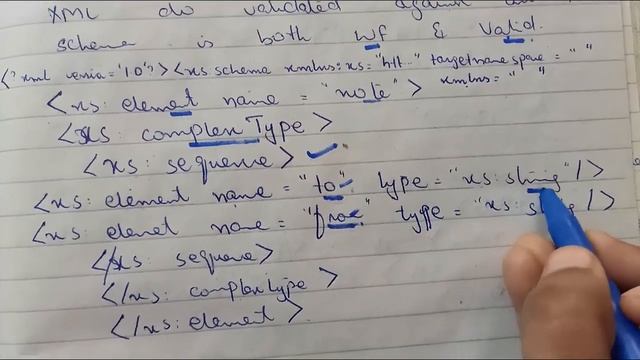 XML do validated against an
schema is both wf & valid.
<?xml versia="1.0"?><xs schema xmlns:xs="htt.." targetnamespace=" "
<xs: element name = "note"> xmlns=" "
<xs: complexType>
<xs: sequence>
<xs: element name = "to" type = "xs: string"/>
<xs: elenet name = "from" type = "xs: string/>
</xs: sequence>
</xs: complextype>
</xs: element>